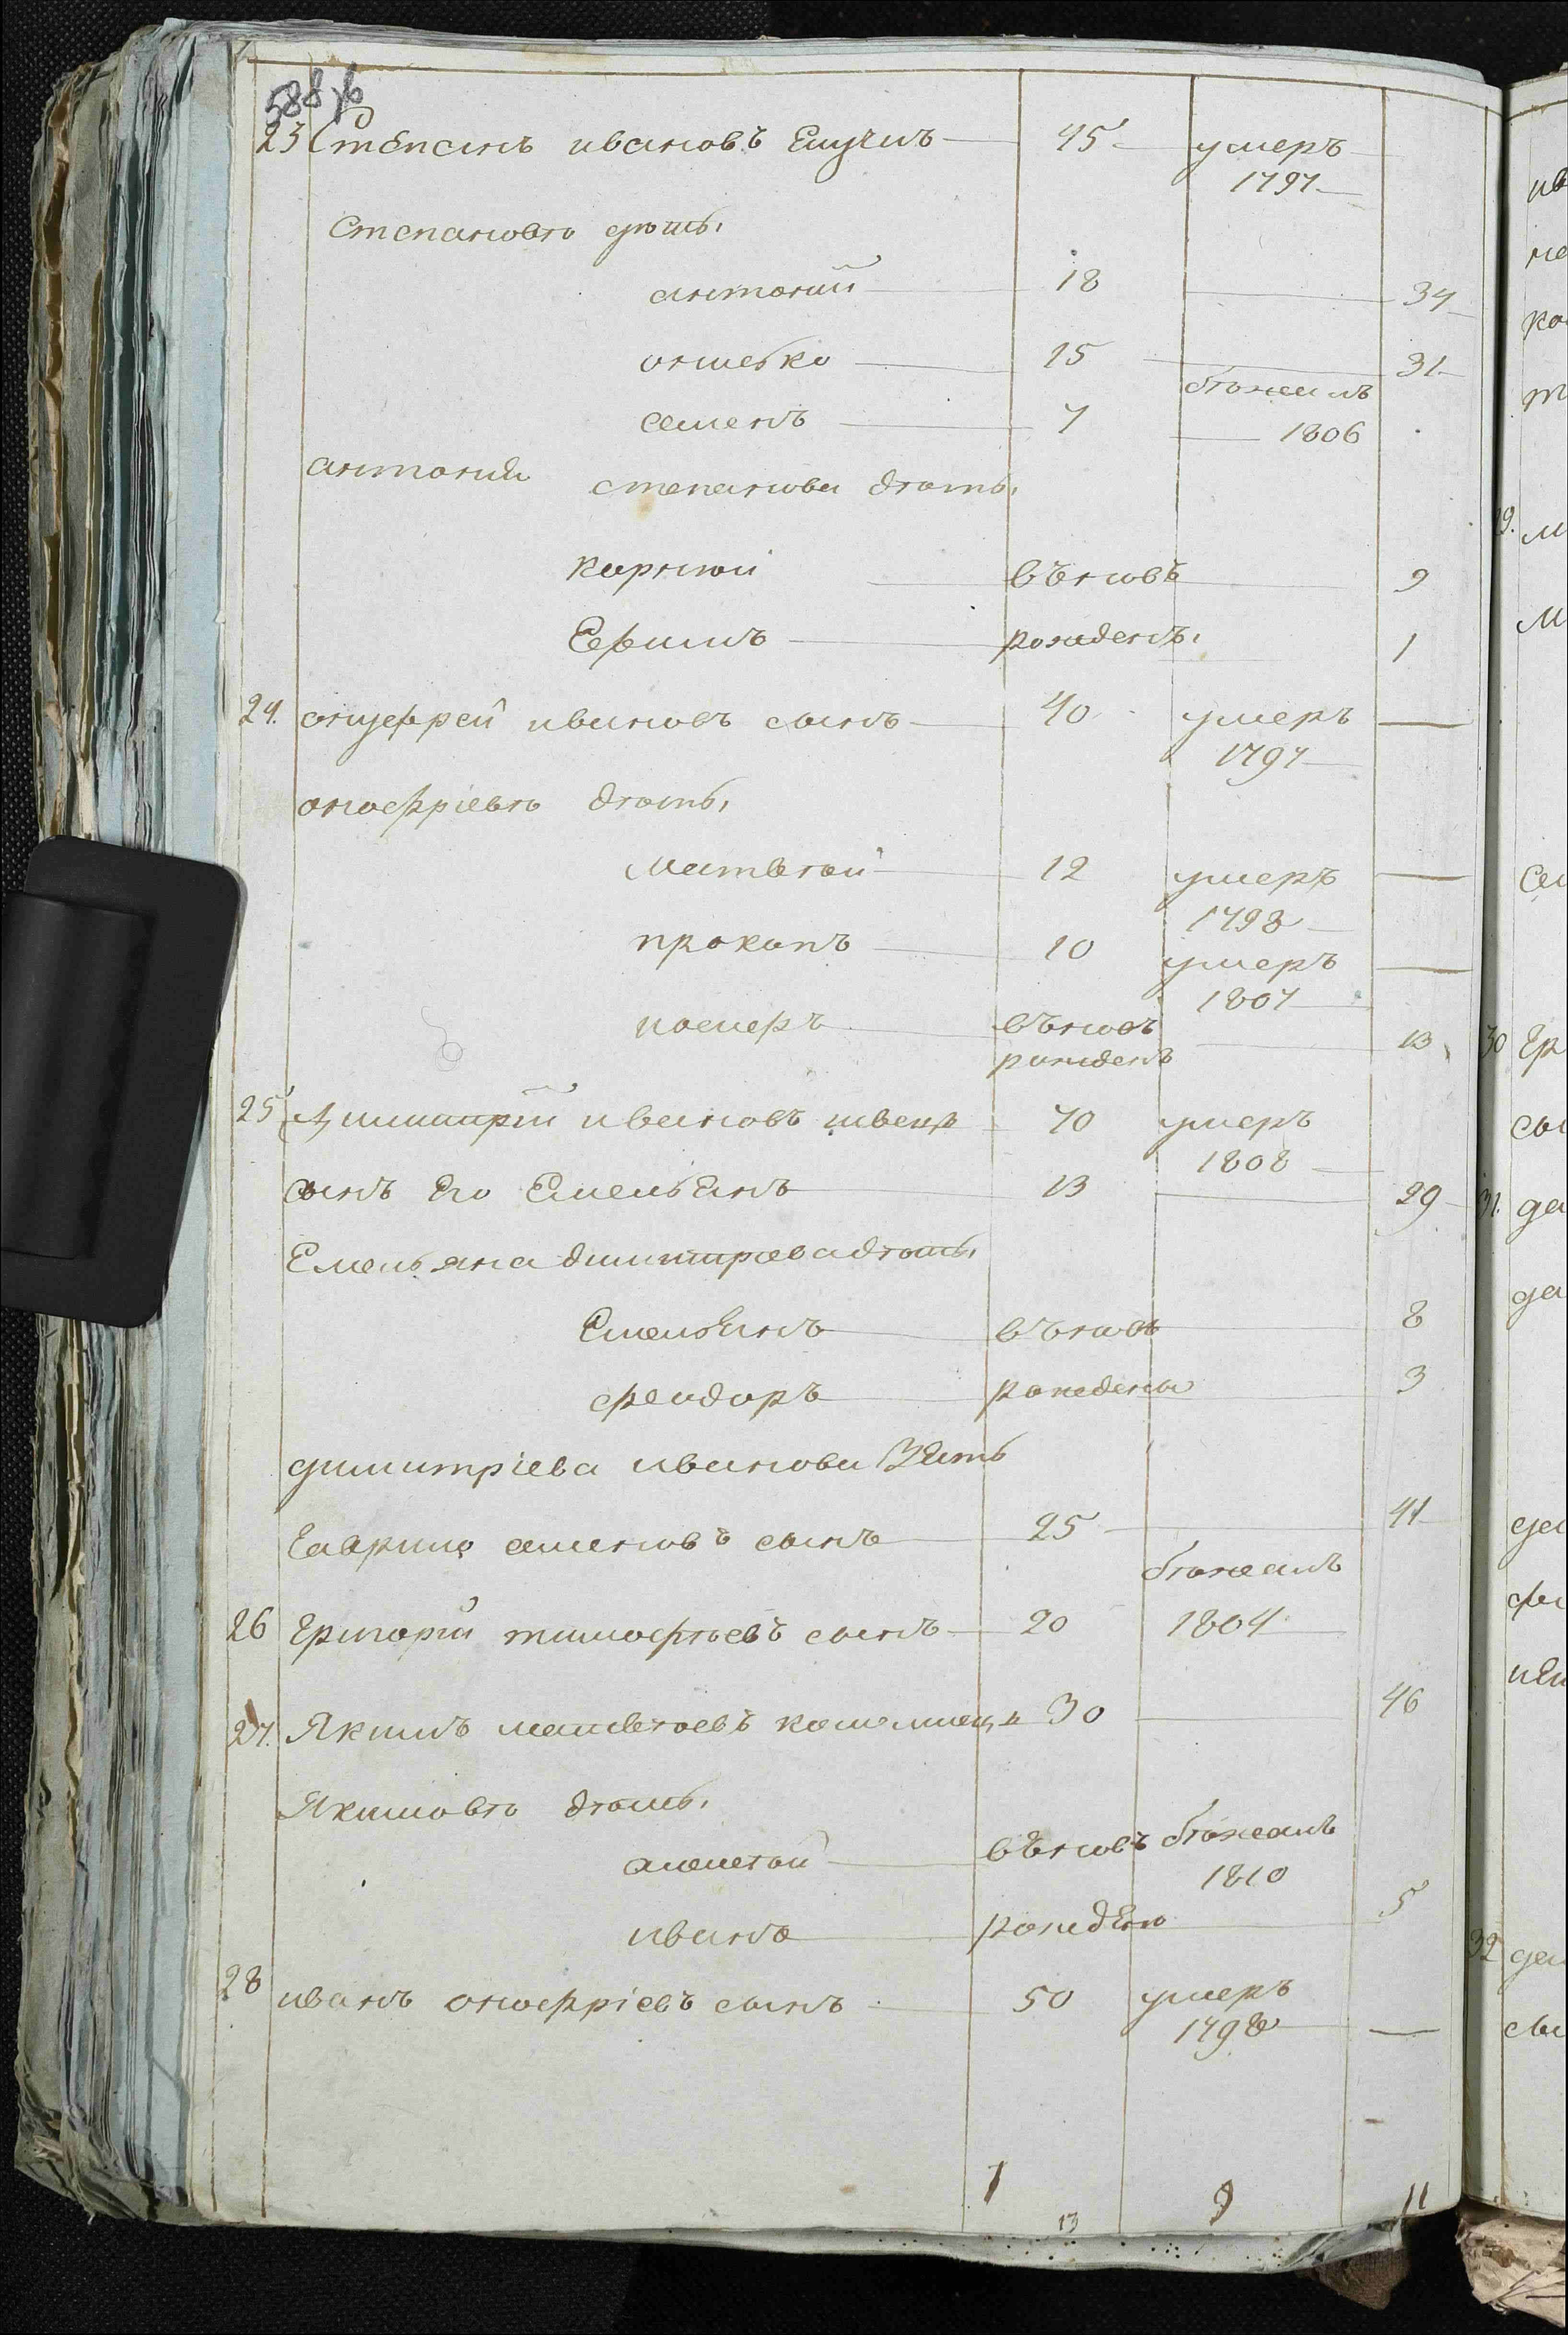 588 об
23 Степанъ ивановъ 45 умеръ
1797
Степановы дѣти,
антоній 18 34
15 31
бѣжалъ
семенъ 7 1806
антонія степанова дѣти,
Корнѣй въновъ 9
Ефимъ рождены, 1
24. онуфрей ивановъ сынъ 40 умеръ —
1797
онофріевы дѣти,
Матвѣй 12 умеръ —
1798
прокопъ 10 умеръ —
1807
въновъ 13
рожденъ
25 Димитрій ивановъ швецъ 70 умеръ
1808
сынъ Его Емельянъ 13 29
Емельяна димитриева дѣти,
Емельянъ въновъ 8
феодоръ рождены 3
димитріева иванова Зять
Гаврило семеновъ сынъ 25 41
бѣжалъ
26 Григорій тимофѣевъ сынъ 20 1804
27. Якимъ матвѣевъ коломиецъ 30 46
Якимовы дѣти,
алексѣй въновъ бѣжалъ
1810
иванъ рождены 5
28 иванъ онофріевъ сынъ 50 умеръ
1798 —
1 9 11
13